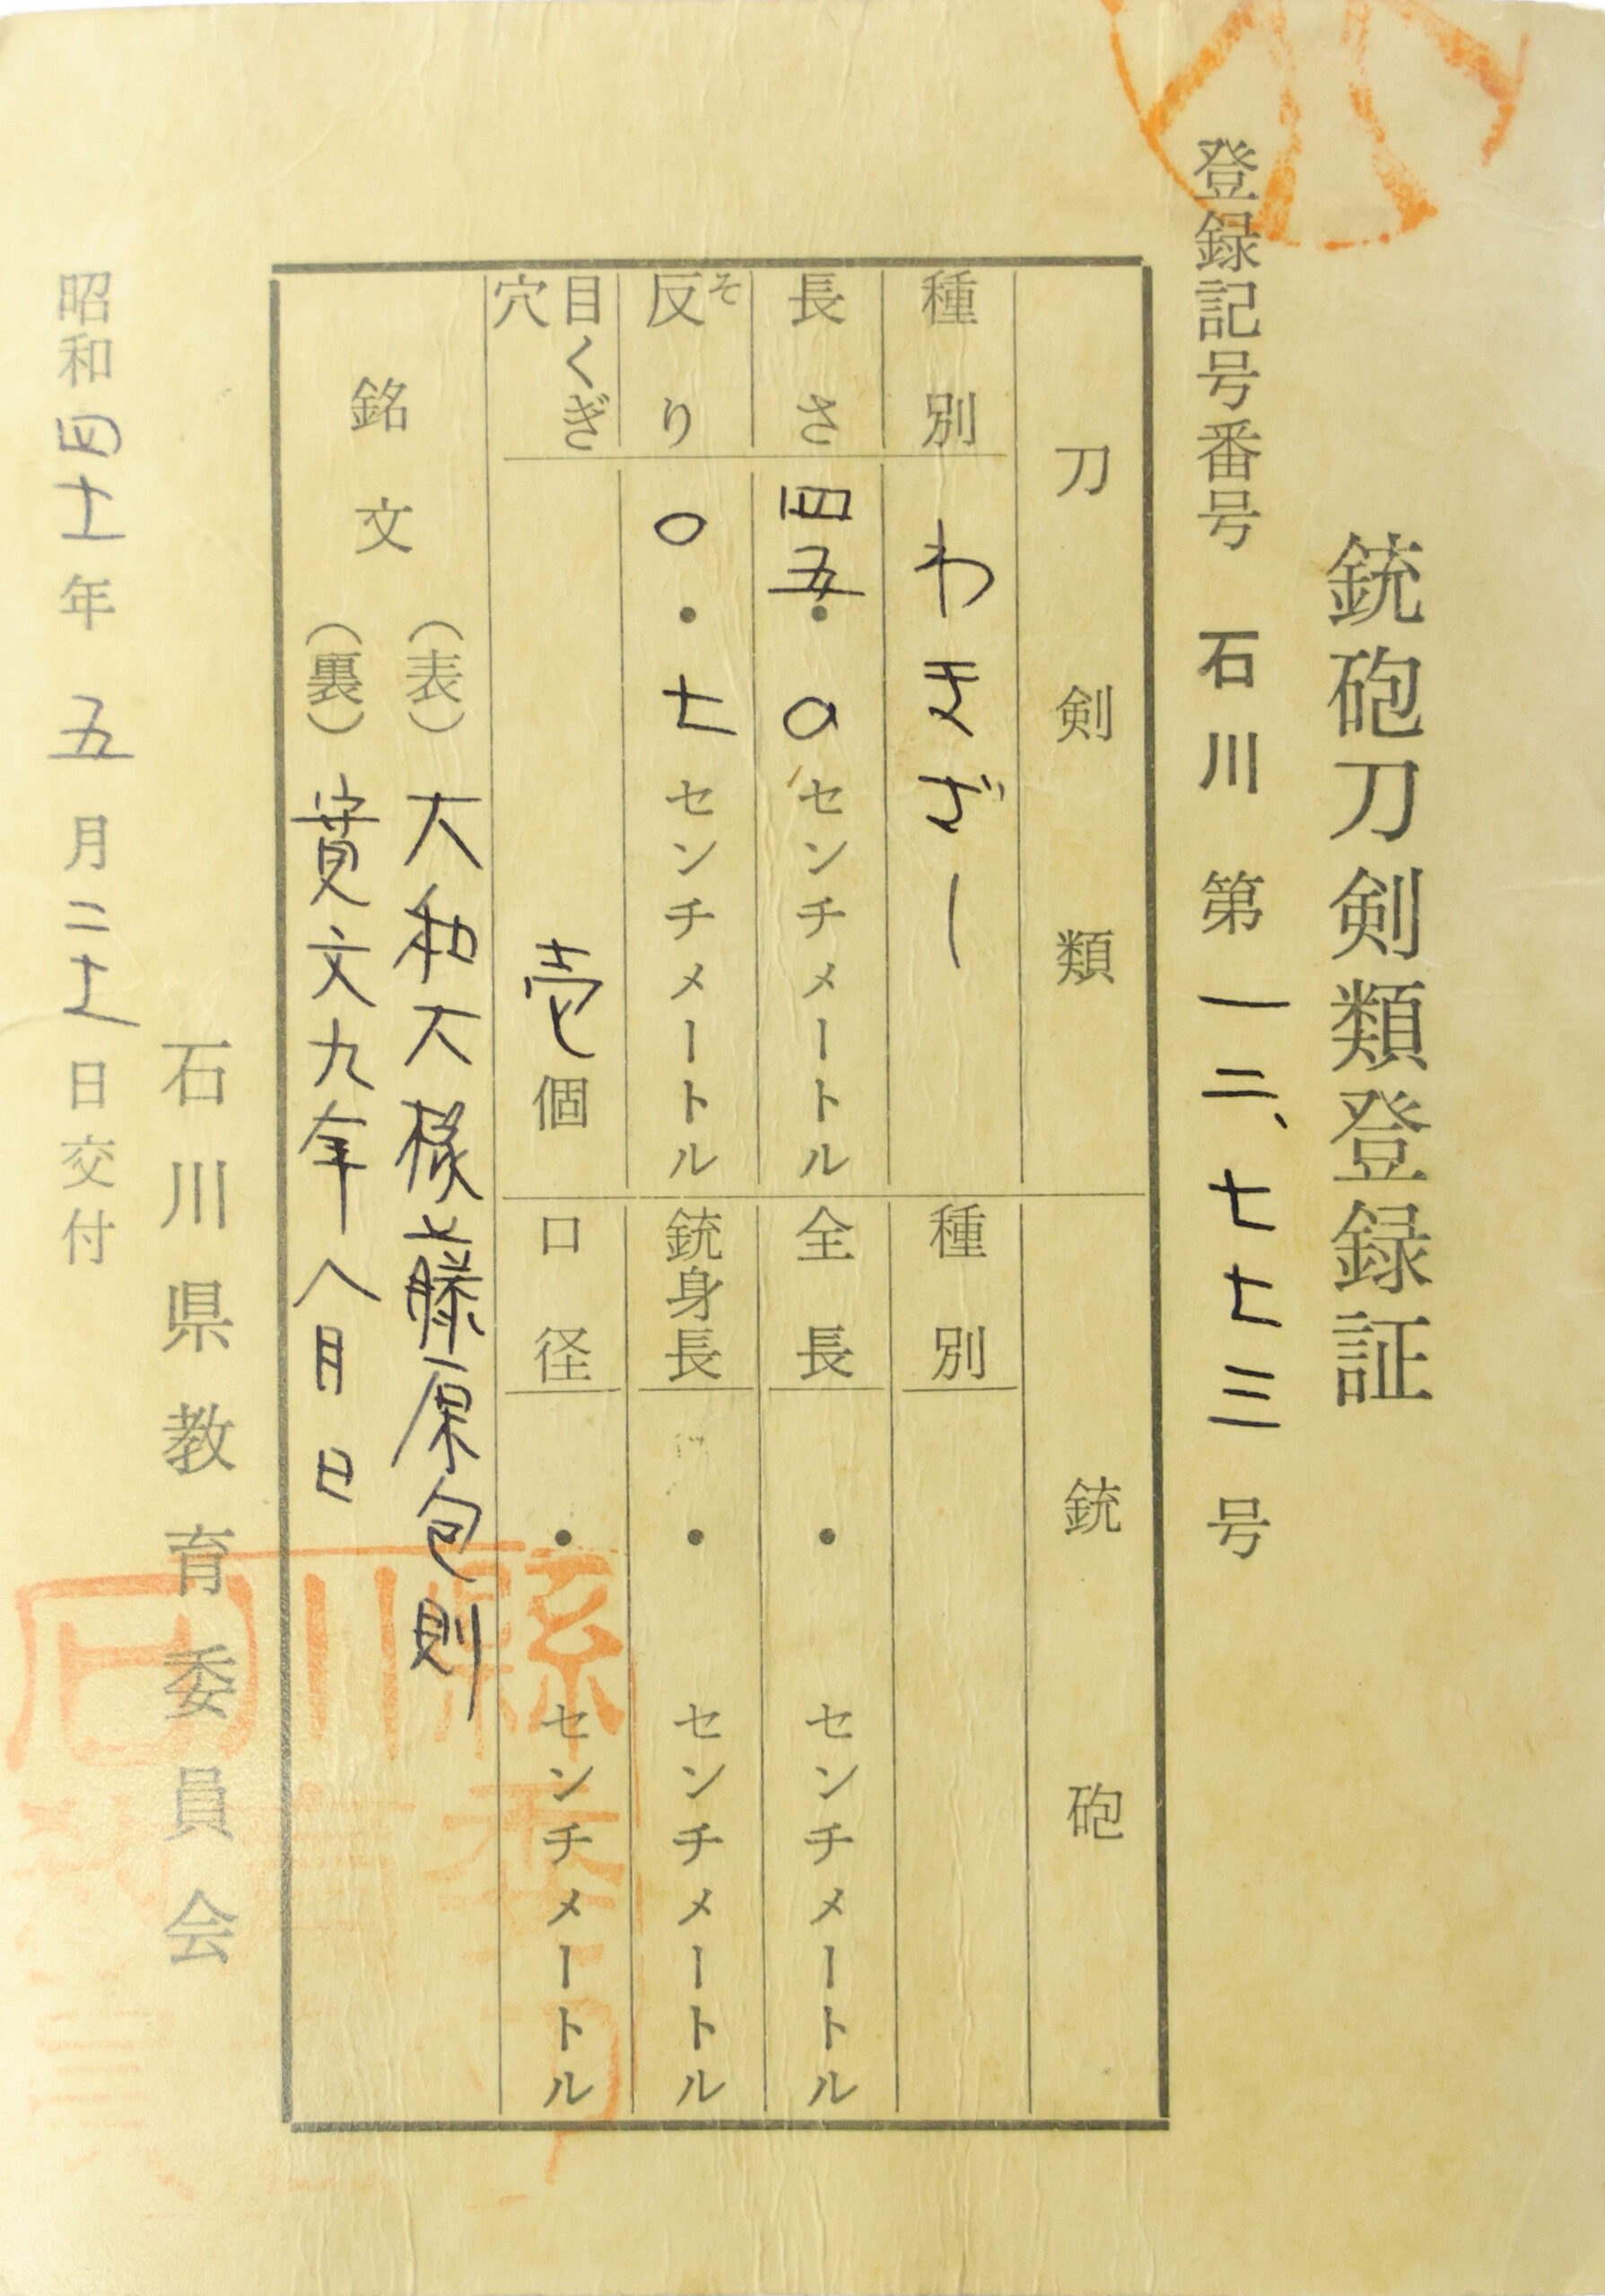 銃砲刀剣類登録証
登録記号番号 石川 第一二、七七三号
刀剣類
種別 わきざし
長さ 四五・〇センチメートル
反り 〇・七センチメートル
そ
目くぎ穴 壱個
銘文
(表)大和大掾藤原包則
(裏)寛文九年八月日
銃砲
種別
全長 ・ センチメートル
銃身長 ・ センチメートル
口径 ・ センチメートル
石川県教育委員会
昭和四十年五月二十日交付